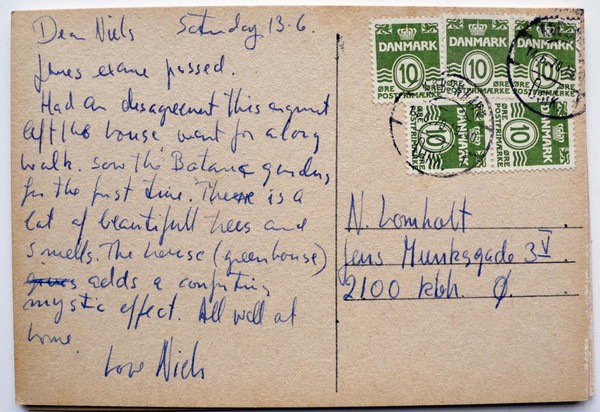 Dear Niels Saturday 13-6.
Jenes exame passed.
Had an disagreement this
left the house went for a long
walk. saw the Botanic gardens
for the first time. There is a
lot of beautifull trees and
smells. The house (greenhouse)
adds a comforting
mystic effect. All well at
home.
Love Niels
DANMARK DANMARK
10 10 10
ØRE ØRE ØRE
POSTFRIMÆRKE POSTFRIMÆRKE POSTFRIMÆRKE
DANMARK DANMARK
10 10
ØRE ØRE
POSTFRIMÆRKE POSTFRIMÆRKE
N. Lomholt
Jens Munksgade 3 V
2100 kbh. Ø.